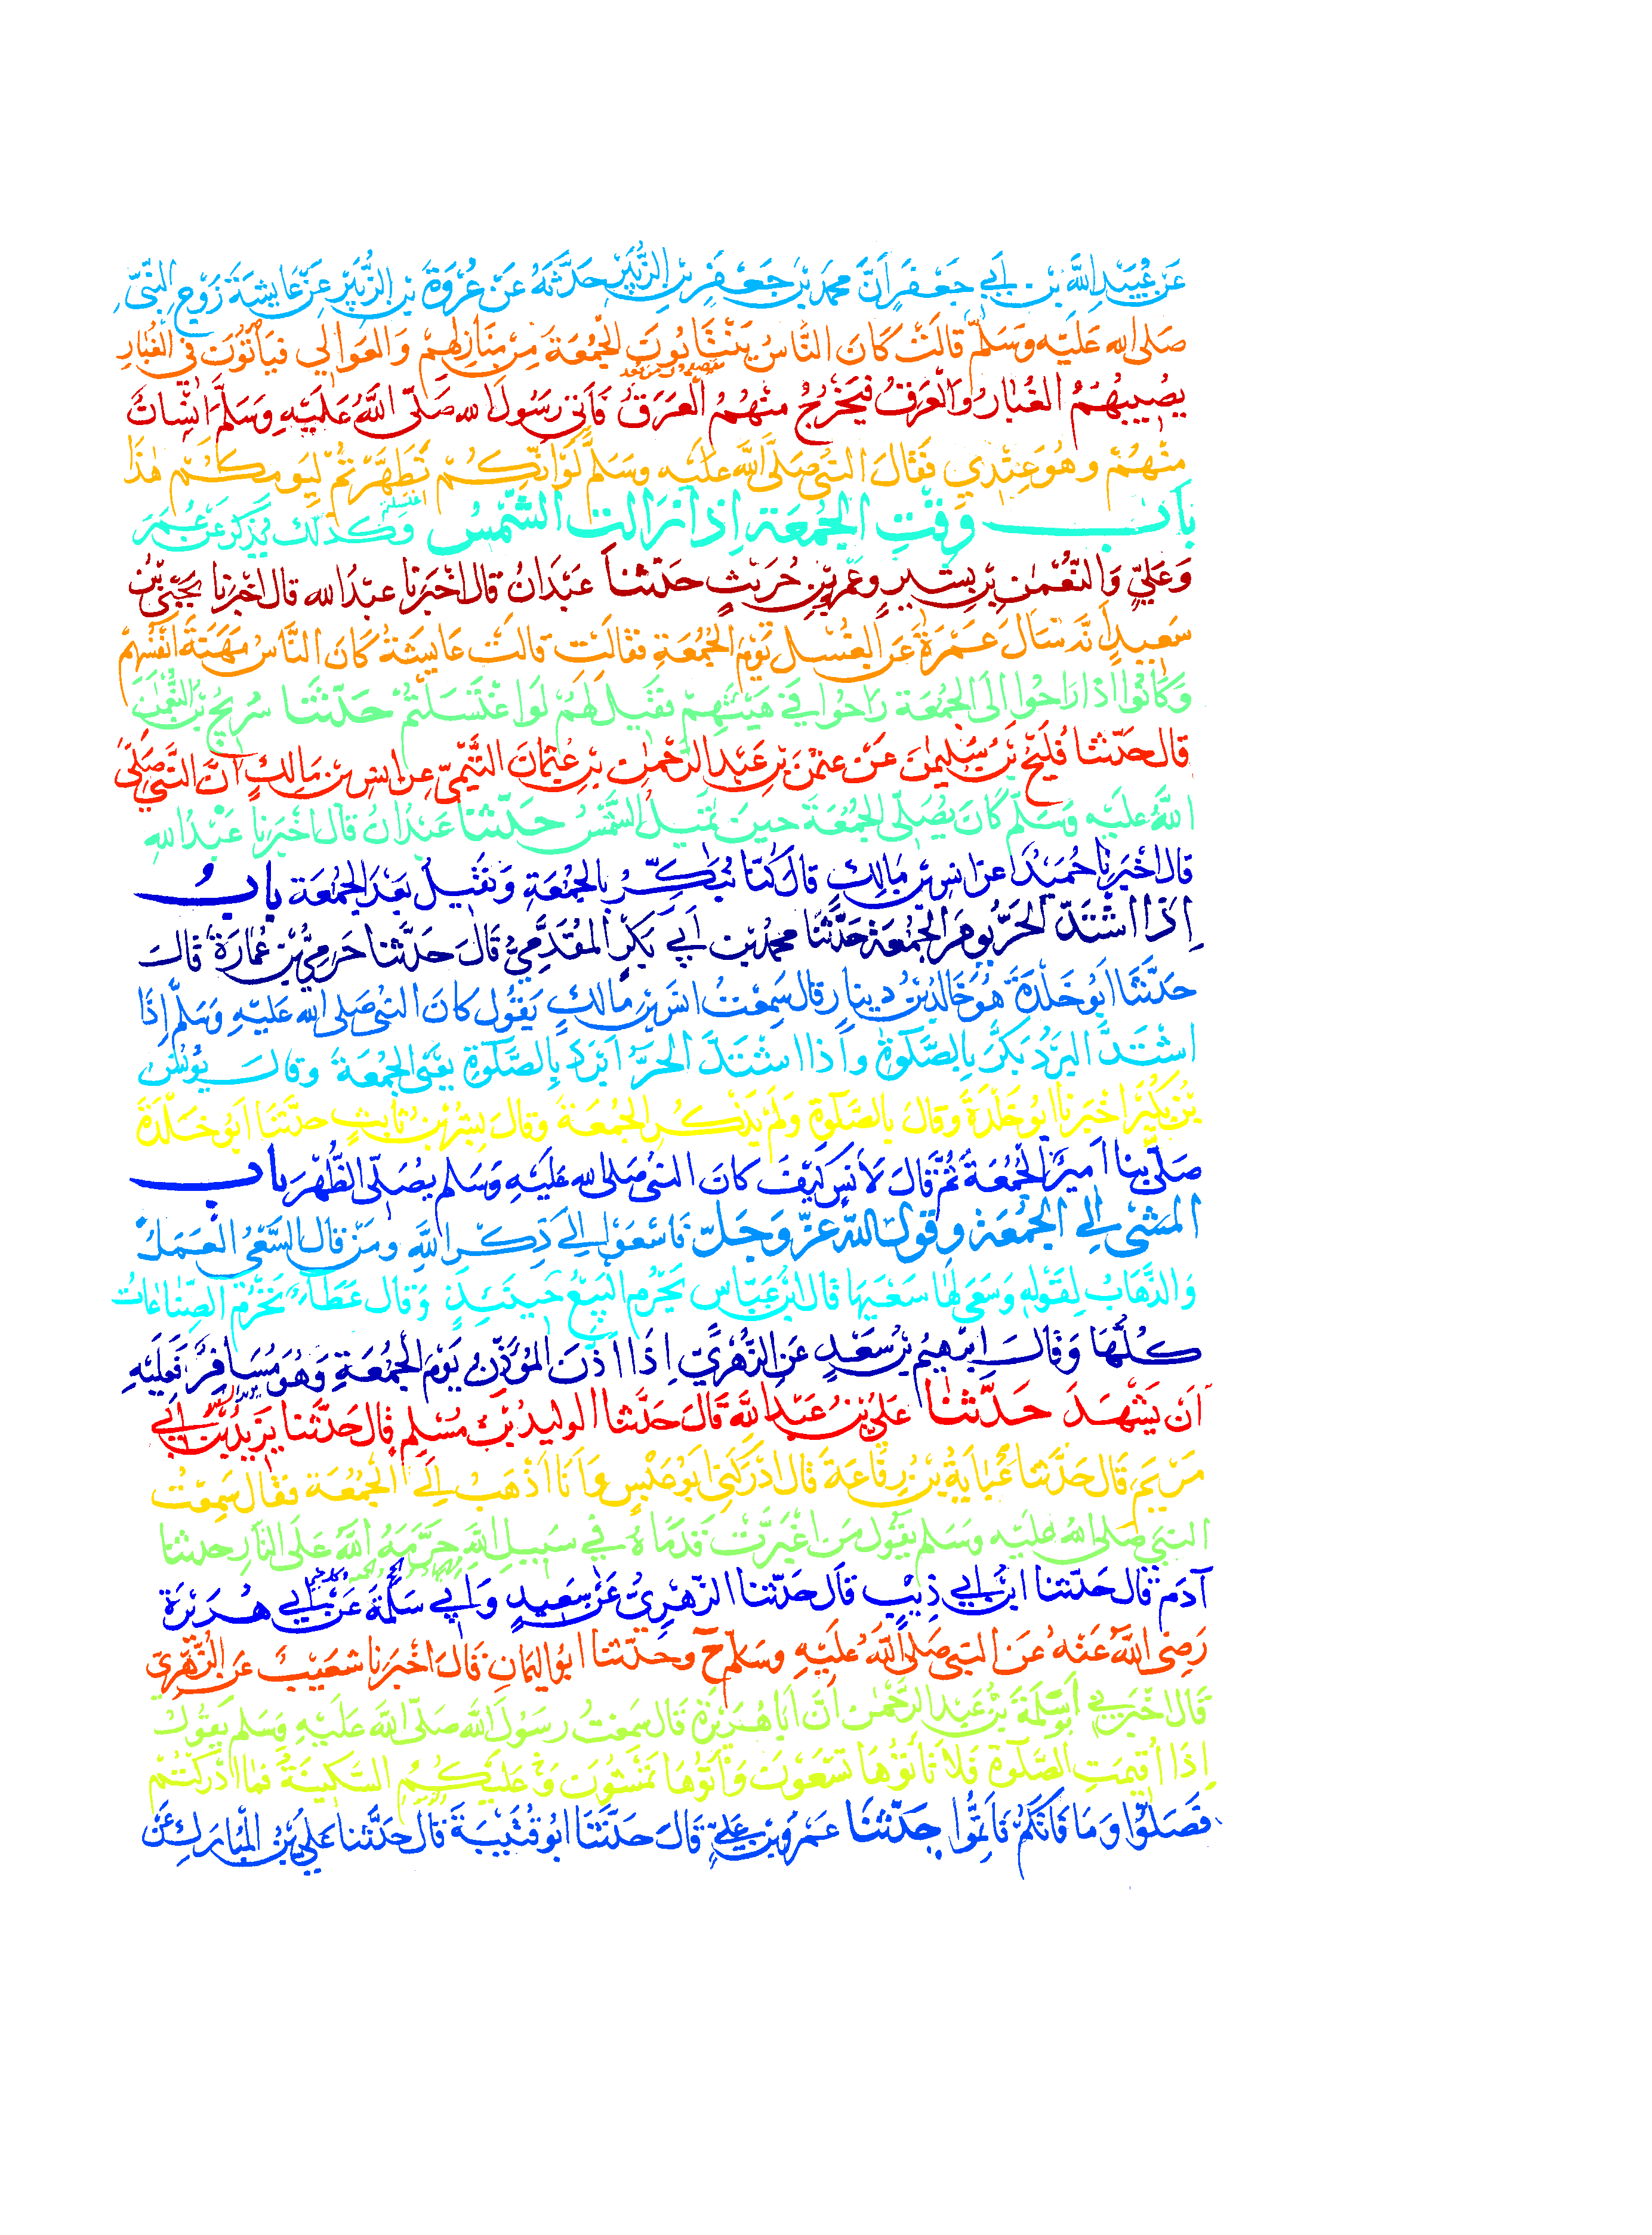 عَنْ عُبَيْدِ اللَّهِ بْنِ أَبِي جَعْفَرٍ أَنَّ مُحَمَّدَ بْنَ جَعْفَرِ بْنِ الزُّبَيْرِ حَدَّثَهُ عَنْ عُرْوَةَ بْنِ الزُّبَيْرِ عَنْ عَايِشَةَ زَوْجِ النَّبِيِّ
صَلى الله عَلَيْهِ وَسَلَّمَ قَالَتْ كَانَ النَّاسُ يَنْتَابُونَ الْجُمُعَةَ مِنْ مَنَازِلِهِمْ وَالعَوَالِي فَيَأْتُونَ فِي الْغُبَارِ
يُصِيبُهُمُ الغُبَارُ وَالْعَرَقُ فَيَخْرُجُ مِنْهُمُ الْعَرَقُ فَأَتَى رَسُولَ الله صَلَّى اللَّهُ عَلَيْهِ وَسَلَّمَ إِنْسَانٌ
مِنْهُمْ وهُوَ عِنْدِي فَقَالَ النَّبِيُّ صَلَّى اللَّهُ عَلَيْهِ وسَلَّمَ لَوْ أَنَّكُمْ تَطَهَّرْتُمْ لِيَوْمِكُمْ هٰذَا
بَابُ وَقْتِ الْجُمُعَةِ إِذَا زَالَتِ الشَّمْسُ وَكَذٰلِكَ يُذْكَرُ عَنْ عُمَرَ
وَعَلِيٍّ وَالنُّعْمٰنِ بْنِ بَشِيرٍ وعَمْرِو بْنِ حُرَيْثٍ حَدَّثَنَا عَبْدَانُ قال اخْبَرَنا عبْدُ الله قال اخْبَرَنا يَحْيَى بْنُ
سَعِيدٍ أَنَّهُ سَأَلَ عَمْرَةَ عَنِ الْغُسْلِ يَوْمَ الْجُمُعَةِ فَقَالَتْ قَالَتْ عَايِشَةُ كَانَ النَّاسُ مَهَنَةَ أَنْفُسِهِمْ
وَكَانُوا إِذَا رَاحُوا إِلَى الْجُمُعَةِ رَاحُوا فِي هَيْئَتِهِمْ فَقِيلَ لَهُمْ لَوِ اغْتَسَلْتُمْ حَدَّثَنَا سُرَيْجُ بْنُ النُّعْمٰنِ
قَالَ حَدَّثَنَا فُلَيْحُ بْنُ سُلَيْمٰنَ عَنْ عُثْمٰنَ بْنِ عَبْدِ الرَّحْمٰنِ بْنِ عُثْمَانَ التَّيْمِيِّ عن انس بْنِ مَالِكٍ أَنَّ النَّبِيَّ صَلَّى
اللَّهُ عَلَيْهِ وَسَلَّمَ كَانَ يُصَلِّي الْجُمُعَةَ حِينَ تَمِيلُ الشَّمْسُ حَدَّثَنَا عَبْدَانُ قَالَ أَخْبَرَنَا عَبْدُ اللهِ
قَالَ أَخْبَرَنَا حُمَيْدٌ عَنْ أَنَسِ بْنِ مَالِكٍ قَالَ كُنَّا نُبَكِّرُ بِالْجُمُعَةِ وَنَقِيلُ بَعْدَ الْجُمُعَةِ بابُ
إِذَا اشْتَدَّ الْحَرُّ يَوْمَ الْجُمُعَةِ حَدَّثَنَا مُحَمَّدُ بْنُ أَبِي بَكْرٍ المُقَدَّمِيُّ قَالَ حَدَّثَنَا حَرَمِيُّ بْنُ عُمَارَةَ قَالَ
حَدَّثَنَا أَبُو خَلْدَةَ هُوَ خَالِدُ بْنُ دِينَارٍ قال سَمِعْتُ أَنَسَ بْنَ مَالِكٍ يَقُولُ كَانَ النَّبِيُّ صَلى الله عَلَيْهِ وَسَلَّمَ إِذَا
اشْتَدَّ الْبَرْدُ بَكَّرَ بِالصَّلَوةِ وَإِذَا اشْتَدَّ الْحَرُّ أَبْرَدَ بِالصَّلَوةِ يَعْنِي الْجُمُعَةَ وقَالَ يُونُسُ
بْنُ بُكَيْرٍ أَخْبَرَنَا أَبُو خَلْدَةَ وَقَالَ بِالصَّلَوةِ وَلَمْ يَذْكُرِ الْجُمُعَةَ وَقَالَ بِشْرُ بْنُ ثَابِتٍ حَدَّثَنَا أَبُو خَلْدَةَ
صَلَّى بِنَا أَمِيرٌ الْجُمُعَةَ ثُمَّ قَالَ لِأَنَسٍ كَيْفَ كَانَ النَّبِيُّ صَلى الله عَلَيْهِ وَسَلَّمَ يُصَلِّي الظُّهْرَ باب
الْمَشْيِ إِلَى الْجُمُعَةِ وقَوْلِ اللَّهِ عَزَّ وَجَلَّ فَاسْعَوْا إِلَى ذِكْرِ اللَّهِ ومَنْ قَالَ السَّعْيُ الْعَمَلُ
وَالذَّهَابُ لِقَوْلِهِ وَسَعَى لَهَا سَعْيَهَا قَالَ ابْنُ عَبَّاسٍ يَحْرُمُ الْبَيْعُ حِينَئِذٍ وَقَالَ عَطَاءٌ تَحْرُمُ الصِّنَاعَاتُ
كُلُّهَا وَقَالَ إِبْرٰهِيمُ بْنُ سَعْدٍ عَنِ الزُّهْرِيِّ إِذَا أَذَّنَ الْمُؤَذِّنُ يَوْمَ الْجُمُعَةِ وَهُوَ مُسَافِرٌ فَعَلَيْهِ
أَنْ يَشْهَدَ حَدَّثَنَا عَلِيُّ بْنُ عَبْدِ اللَّهِ قَالَ حَدَّثَنَا الْوَلِيدُ بْنُ مُسْلِمٍ قَالَ حَدَّثَنَا يَزِيدُ بْنُ أَبِي
مَرْيَمَ قَالَ حَدَّثَنَا عَبَايَةُ بْنُ رِفَاعَةَ قَالَ أَدْرَكَنِي أَبُو عَبْسٍ وَأَنَا أَذْهَبُ إِلَى الْجُمُعَةِ فَقَالَ سَمِعْتُ
النَّبِيَّ صَلى اللهُ عَلَيْهِ وَسَلَّمَ يَقُولُ مَنِ اغْبَرَّتْ قَدَمَاهُ فِي سَبِيلِ اللَّهِ حَرَّمَهُ اللَّهُ عَلَى النَّارِ حدثنا
آدَمُ قَالَ حَدَّثَنَا ابْنُ أَبِي ذِيبٍ قَالَ حَدَّثَنَا الزُّهْرِيُّ عَنْ سَعِيدٍ وَأَبِي سَلَمَةَ عَنْ أَبِي هُرَيْرَةَ
رَضِيَ اللَّهُ عَنْهُ عَنِ النَّبِيِّ صَلَّى اللَّهُ عَلَيْهِ وَسَلَّمَ ح وَحَدَّثَنَا أَبُو الْيَمَانِ قَالَ أَخْبَرَنَا شُعَيْبٌ عَنِ الزُّهْرِيِّ
قَالَ أَخْبَرَنِي أَبُو سَلَمَةَ بْنُ عَبْدِ الرَّحْمٰنِ أَنَّ أَبَا هُرَيْرَةَ قَالَ سَمِعْتُ رَسُولَ اللَّهِ صَلَّى اللَّهُ عَلَيْهِ وَسَلَّمَ يَقُولُ
إِذَا أُقِيمَتِ الصَّلَوةُ فَلَا تَأْتُوهَا تَسْعَوْنَ وَأْتُوهَا تَمْشُونَ وَعَلَيْكُمُ السَّكِينَةُ فَمَا أَدْرَكْتُمْ
فَصَلُّوا وَمَا فَاتَكُمْ فَأَتِمُّوا حَدَّثَنَا عَمْرُو بْنُ عَلِيٍّ قَالَ حَدَّثَنَا أَبُو قُتَيْبَةَ قَالَ حَدَّثَنَا عَلِيُّ بْنُ الْمُبَارَكِ عَنْ